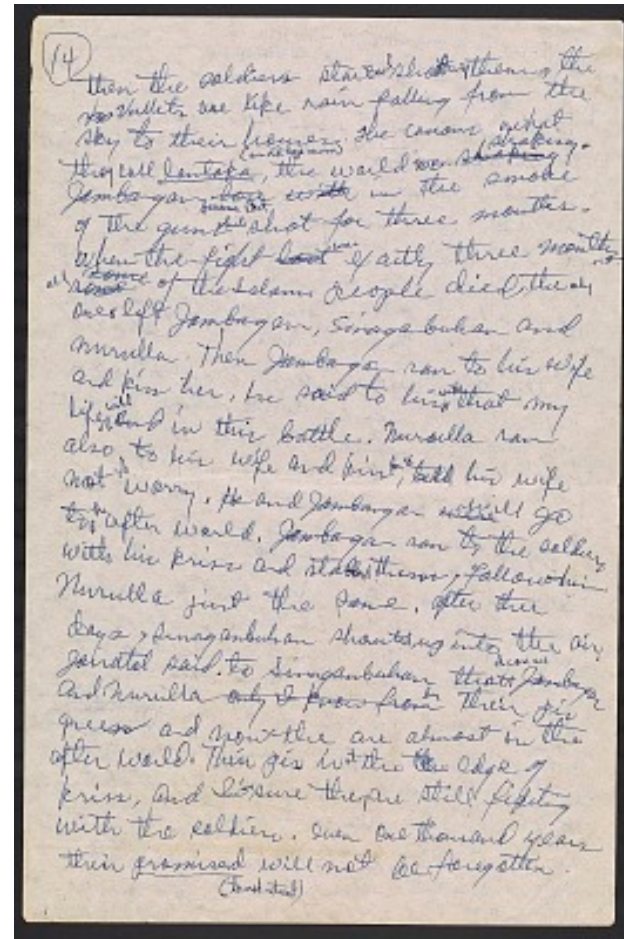 14
then the soldiers started shooting them, the
bullets are like rain falling from the
sky to their houses. The canons what
they call lantaka, the world was shaking.
Jambagan in the smoke
of the gun shot for three months.
When the fight was exactly three months
all of the Islamic people died, the only
ones left Jambagan, Sinaganbuhan and
Nurulla. Then Jambagan ran to his wife
and kiss her, he said to his wife that my
life will end in this battle. Nurulla ran
also, to his wife and kiss her, told his wife
not to worry. He and Jambagan will go
to after world. Jambagan ran to the soldiers
with his kriss and them, follow him
Nurulla just the same. After three
days, Sinaganbuhan shouts up into the air,
said to Sinaganbuhan that Jambagan
and Nurulla only I know from their
and now the are almost in the
after world. Their in the the edge of
kriss, and I'm sure they're still fighting
with the soldiers. Even one thousand years
their promised will not be foregotten.